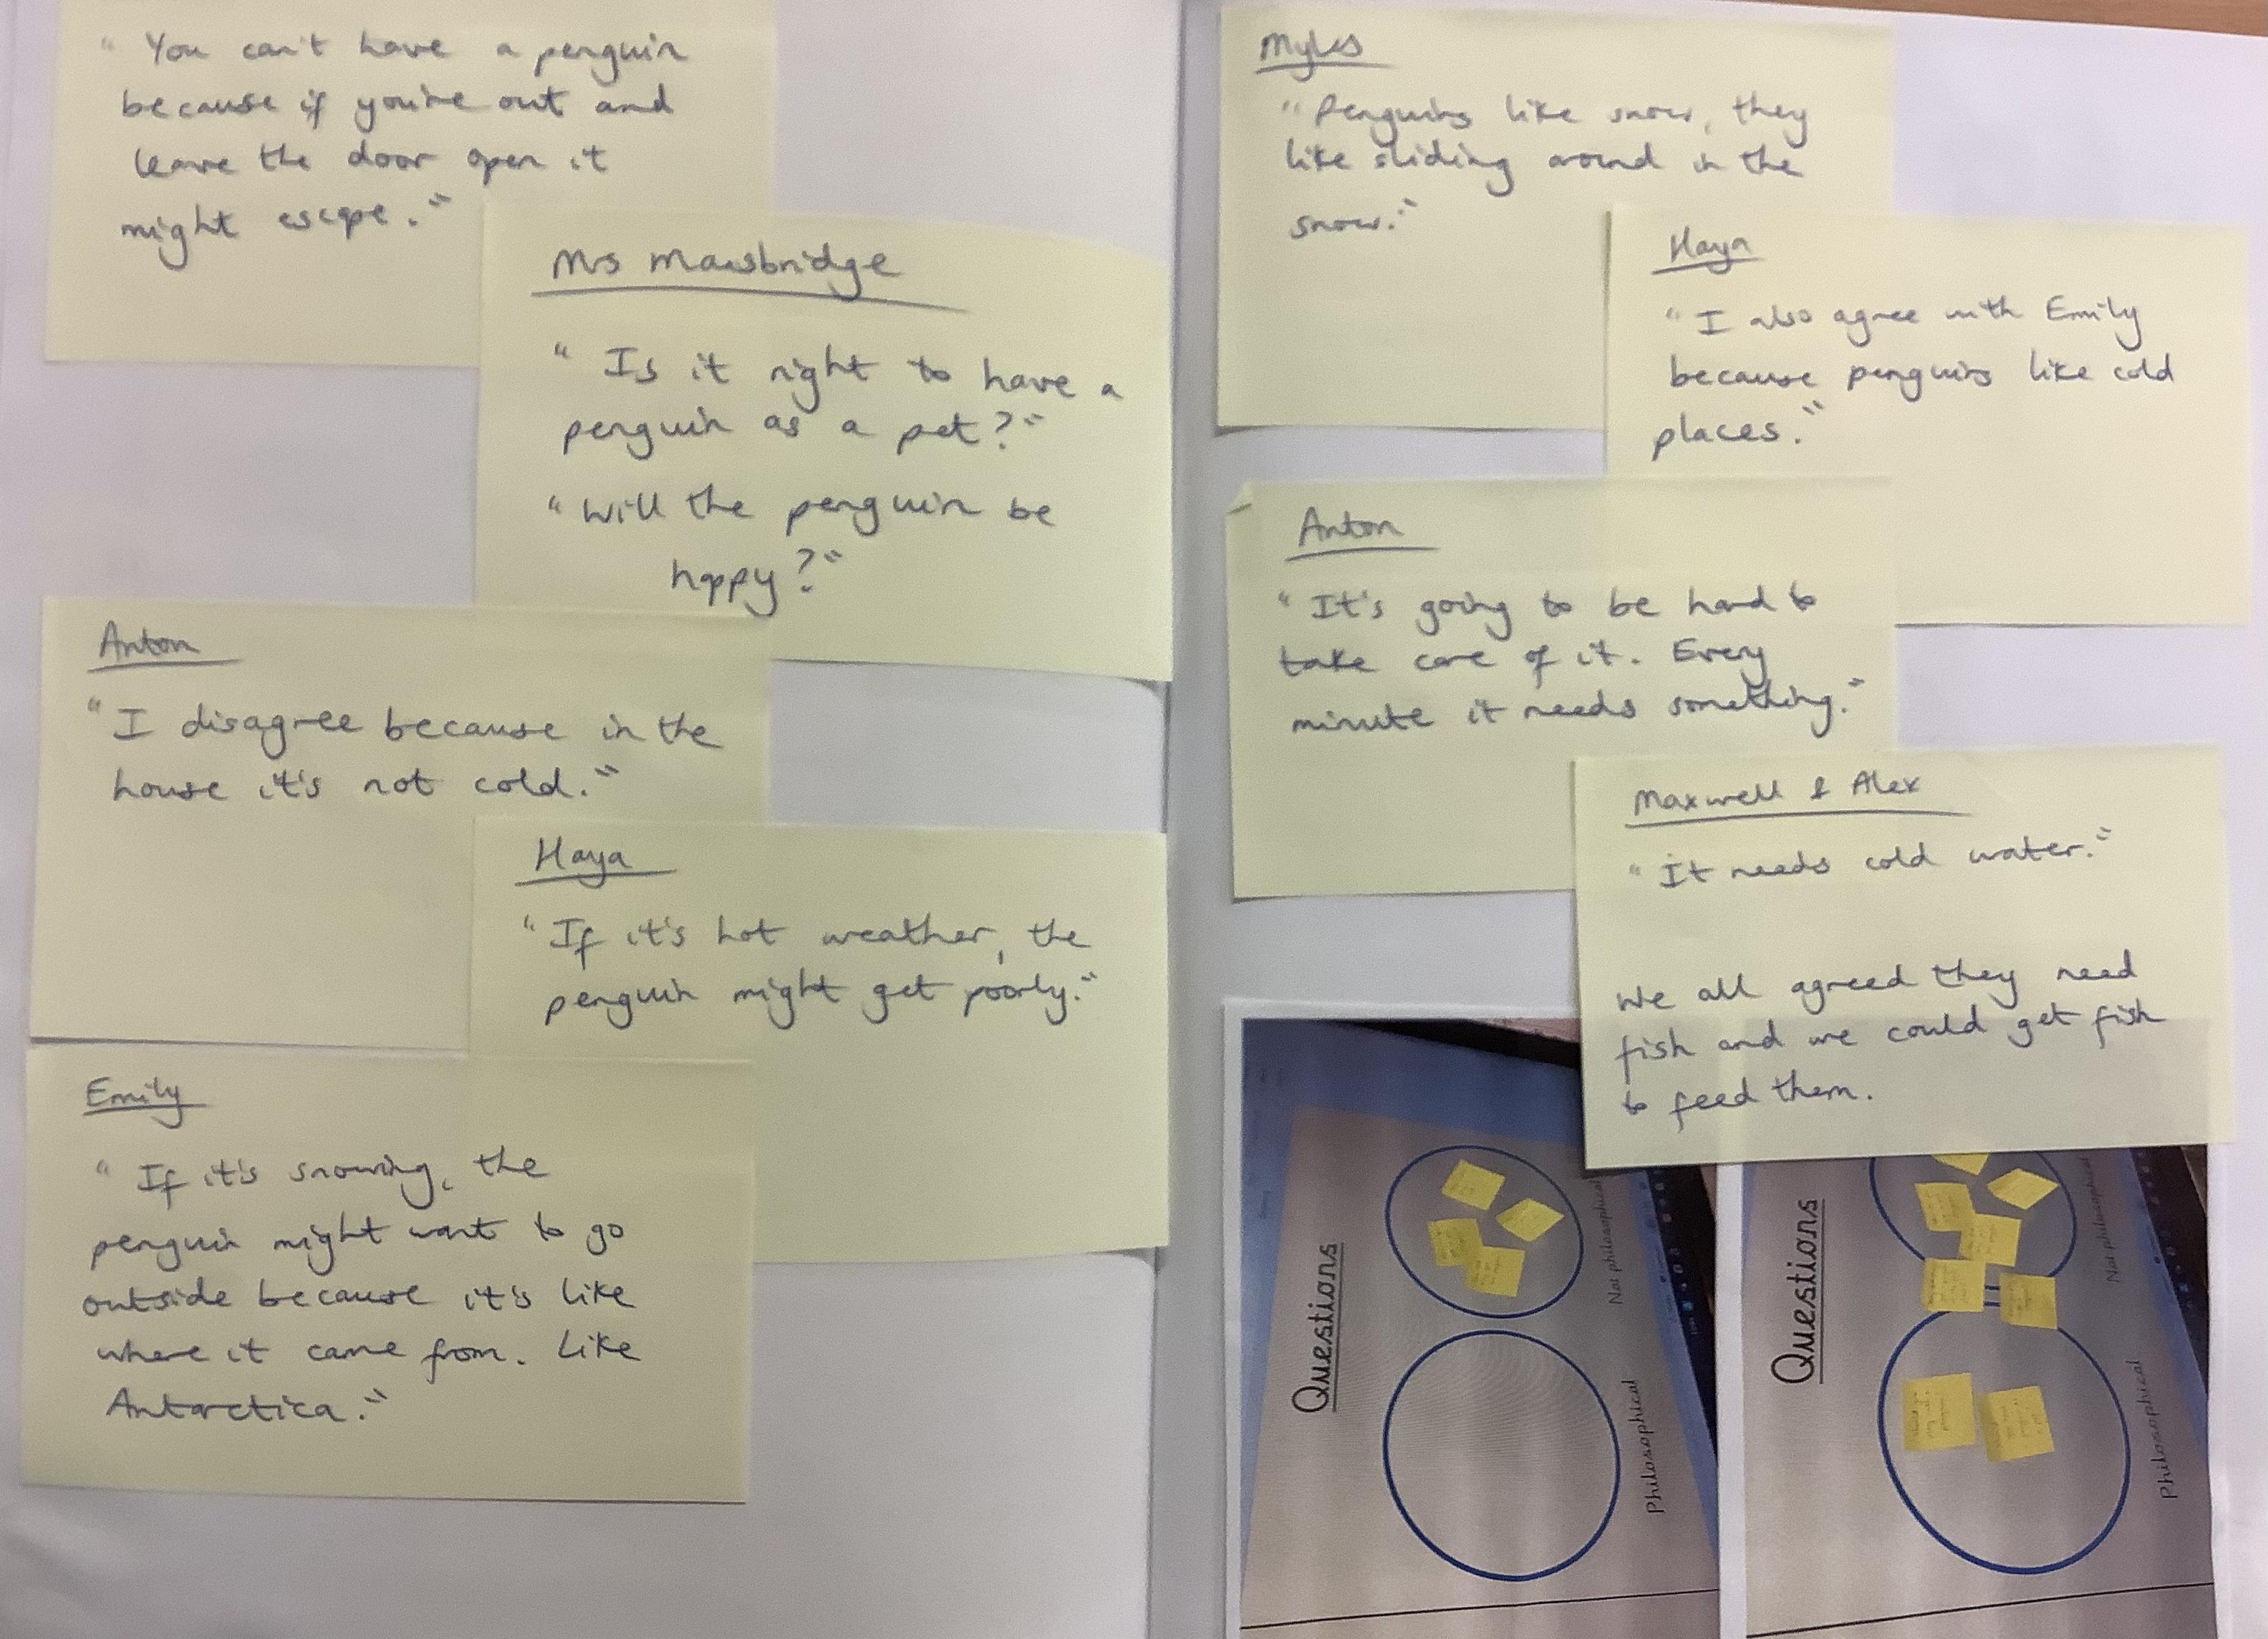 " You can't have a penguin
because if you're out and
leave the door open it
might escape."
Ms Mawbridge
" Is it right to have a
penguin as a pet?"
" Will the penguin be
happy?"
Anton
" I disagree because in the
house it's not cold."
Haya
" If it's hot weather, the
penguin might get poorly."
Emily
" If it's snowing, the
penguin might want to go
outside because it's like
where it came from. Like
Antarctica."
Myles
" Penguins like snow, they
like sliding around in the
snow."
Haya
" I also agree with Emily
because penguins like cold
places."
Anton
" It's going to be hard to
take care of it. Every
minute it needs something."
Maxwell & Alex
" It needs cold water."
We all agreed they need
fish and we could get fish
to feed them.
Questions
Not philosophical
Philosophical
Questions
Not philosophical
Philosophical